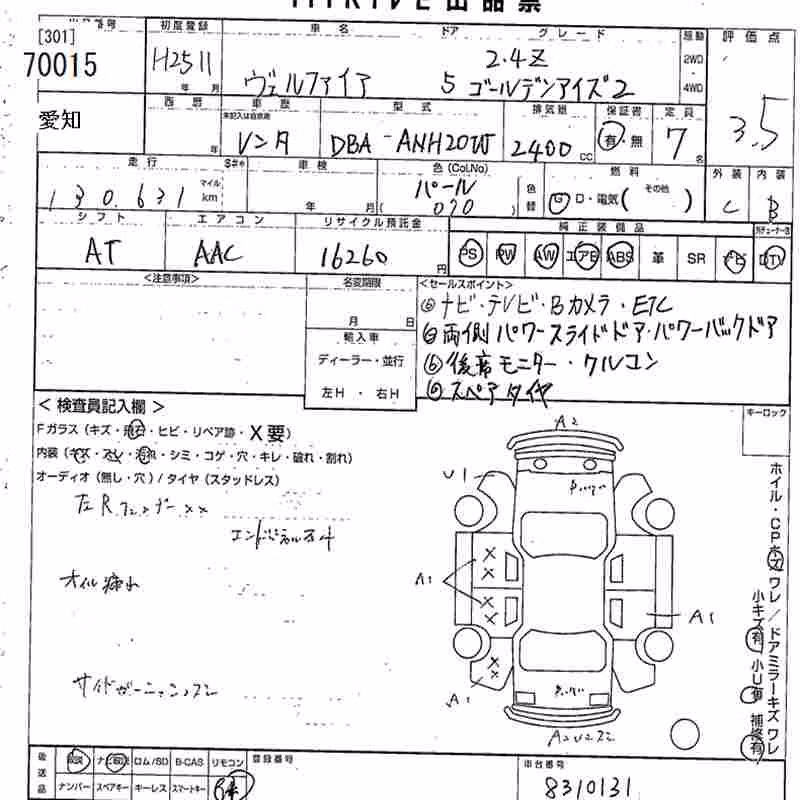 [301]
70015
愛知
初度登録
H25 11
年 月
車名
ヴェルファイア
ドア
5
グレード
2.4Z
ゴールデンアイズ2
駆動
2WD
・
4WD
評価点
3.5
西暦
年
車歴
未記入は自家用
レンタ
型式
DBA - ANH20W
排気量
2400 CC
保証書
有・無
定員
7名
走行
130,631
マイル
km
車検
年 月
色(Col,No)
パール
( 070 )
色替
燃料
G D・電気( その他 )
外装
C
内装
B
シフト
AT
エアコン
AAC
リサイクル預託金
16260 円
純正装備品
PS PW AW エアB ABS 革 SR ナビ TV
<注意事項>
名変期限
月 日
輸入車
ディーラー・並行
左H ・ 右H
<セールスポイント>
ナビ・テレビ・Bカメラ・ETC
両側パワースライドドア・パワーバックドア
後席モニター・クルコン
スペアタイヤ
キーロック
< 検査員記入欄 >
Fガラス (キズ・飛石・ヒビ・リペア跡・X要)
内装 (キズ・スレ・汚れ・シミ・コゲ・穴・キレ・破れ・割れ)
オーディオ (無し・穴) / タイヤ (スタッドレス)
左Rフェンダー××
オイル漏れ
A2
U1
A1
A1
A1
ホイル・CPキズ ワレ / ドアミラーキズ ワレ
小キズ有 小U有 補修有
後送品
取説 ナビ取説 ロム/SD B-CAS リモコン
ナンバー スペアキー キーレス スマートキー
登録番号
車台番号
8310131